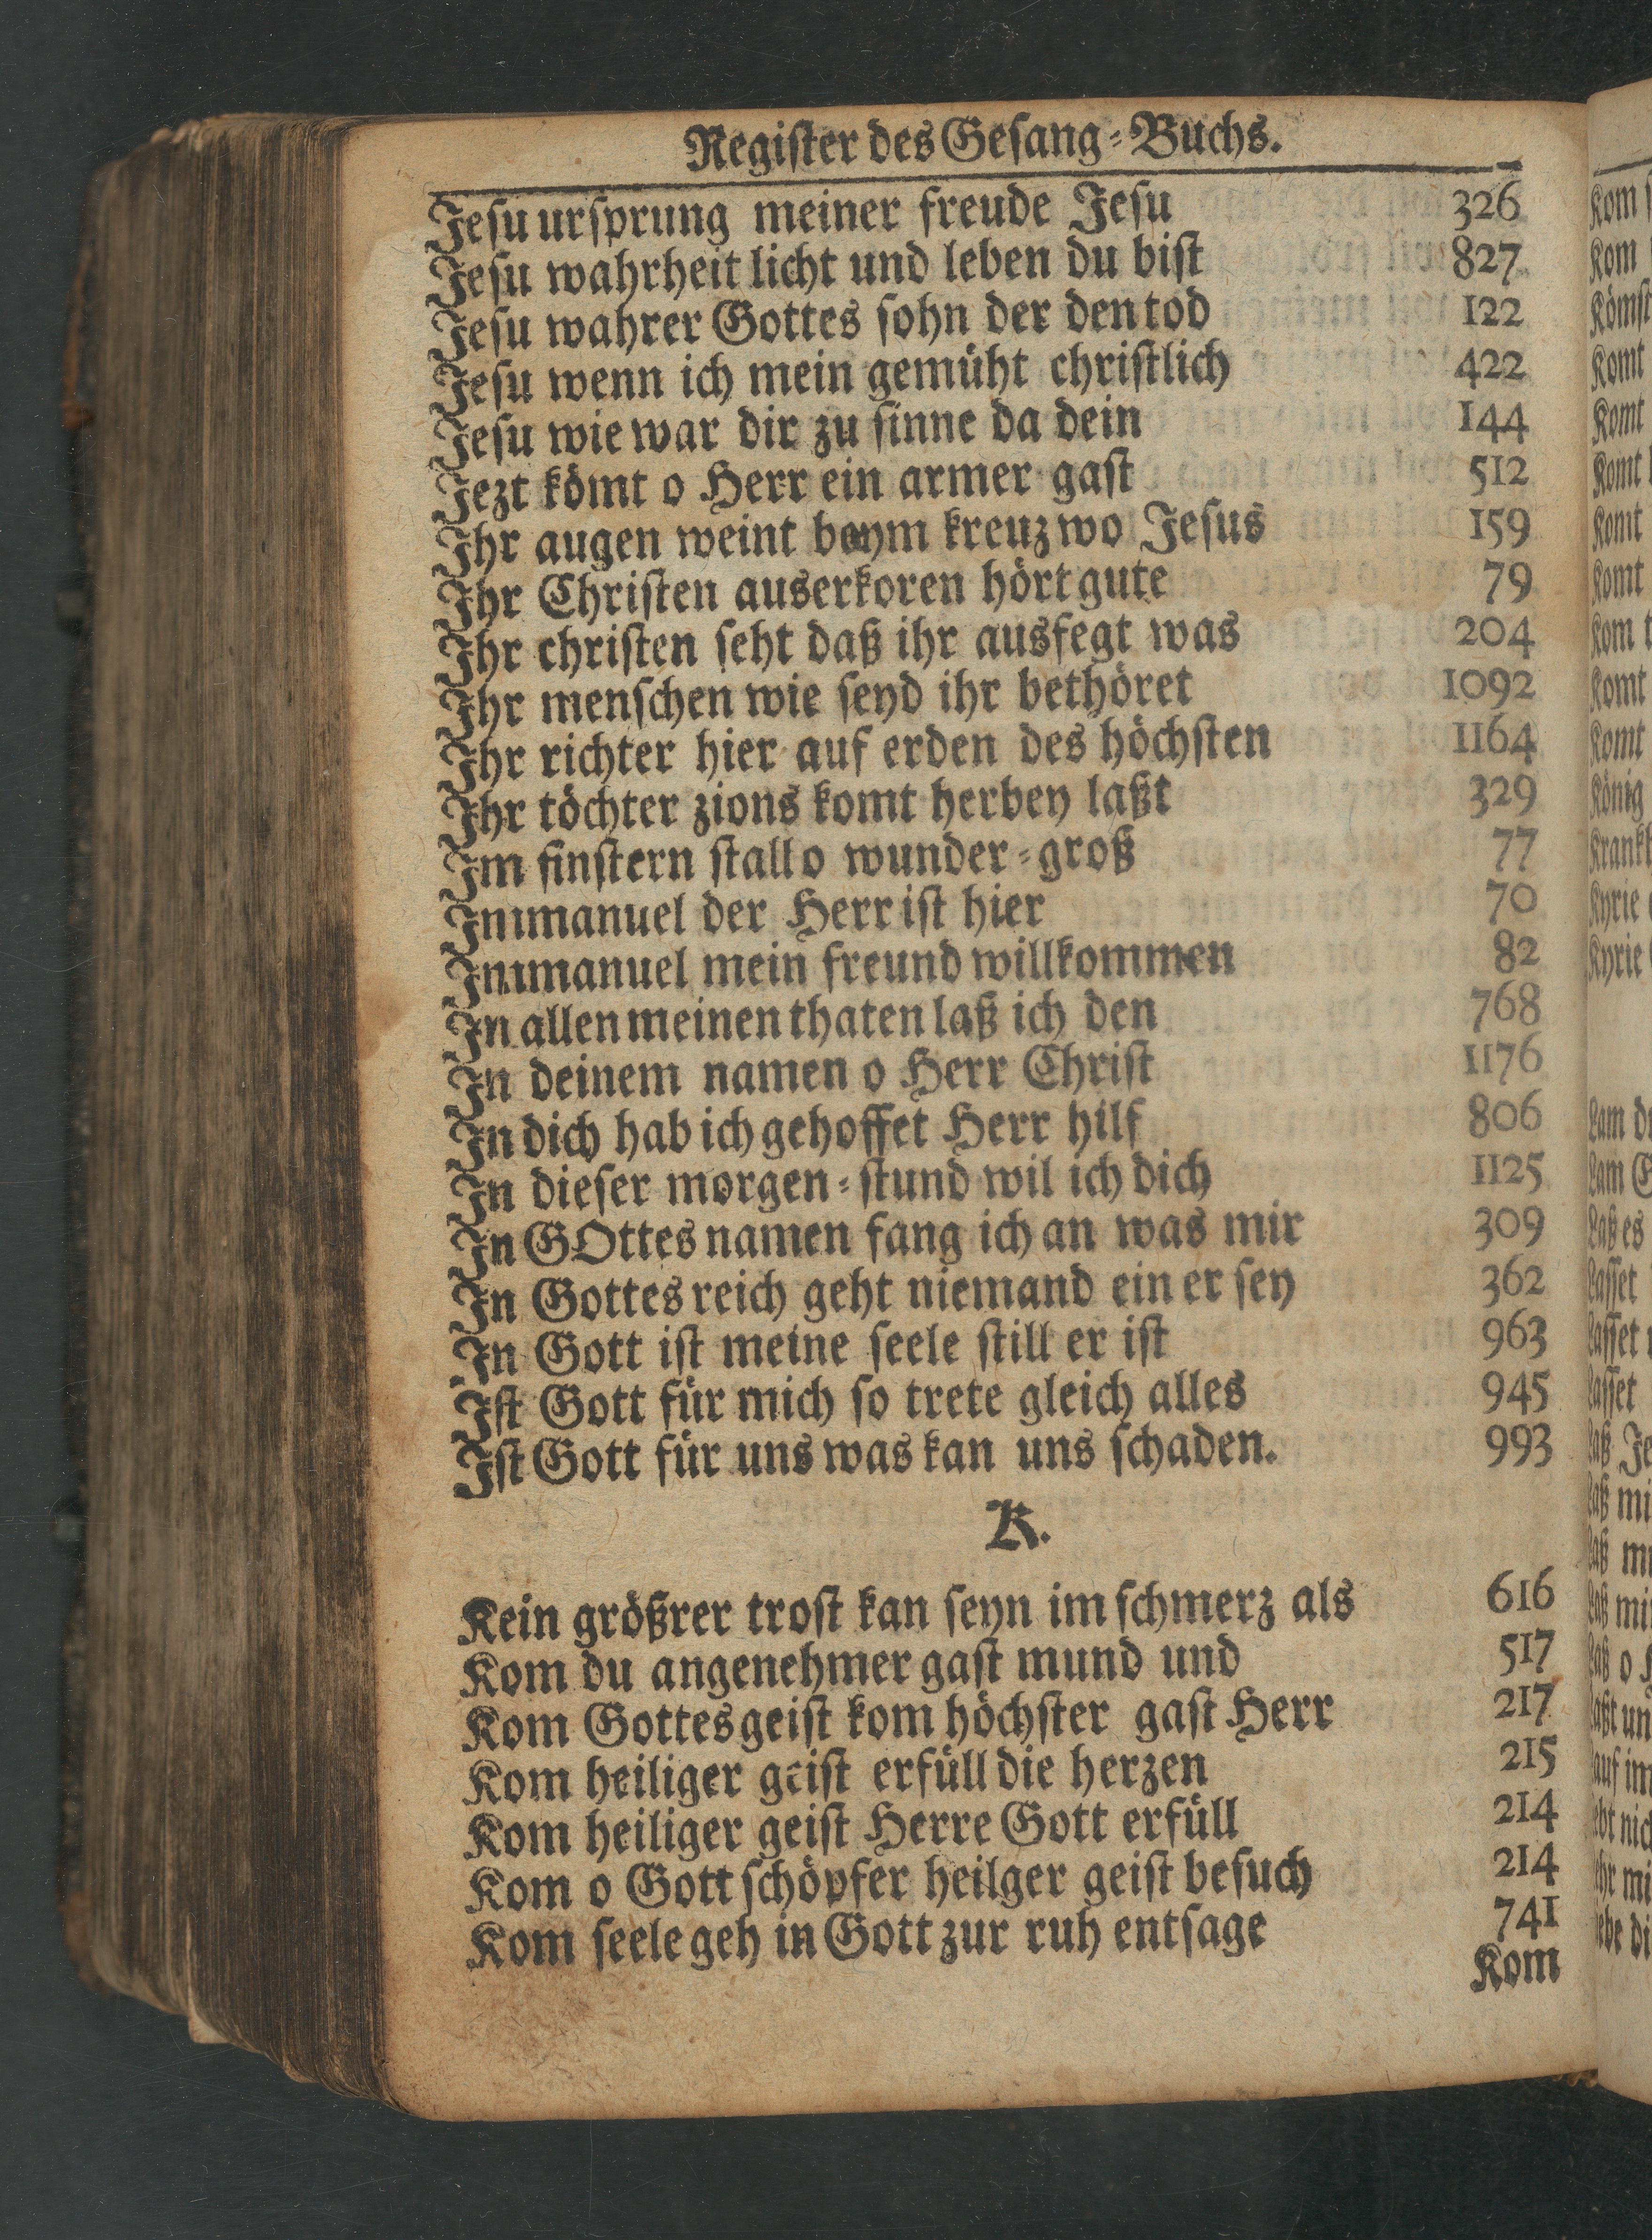 Register des Gesang-Buchs.
Jesu ursprung meiner freude Jesu 326
Jesu wahrheit licht und leben du bist 827
Jesu wahrer Gottes sohn der den tod 122
Jesu wenn ich mein gemüht christlich 422
Jesu wie war dir zu sinne da dein 144
Jezt kömt o Herr ein armer gast 512
Ihr augen weint beym kreuz wo Jesus 159
Ihr Christen auserkoren hört gute 79
Ihr christen seht daß ihr ausfegt was 204
Ihr menschen wie seyd ihr bethöret 1092
Ihr richter hier auf erden des höchsten 1164
Ihr töchter zions komt herbey laßt 329
Im finstern stall o wunder-groß 77
Immanuel der Herr ist hier 70
Immanuel mein freund willkommen 82
In allen meinen thaten laß ich den 768
In deinem namen o Herr Christ 1176
In dich hab ich gehoffet Herr hilf 806
In dieser morgen-stund wil ich dich 1125
In GOttes namen fang ich an was mir 309
In Gottes reich geht niemand ein er sey 362
In Gott ist meine seele still er ist 963
Ist Gott für mich so trete gleich alles 945
Ist Gott für uns was kan uns schaden. 993
K.
Kein größrer trost kan seyn im schmerz als 616
Kom du angenehmer gast mund und 517
Kom Gottes geist kom höchster gast Herr 217
Kom heiliger geist erfüll die herzen 215
Kom heiliger geist Herre Gott erfüll 214
Kom o Gott schöpfer heilger geist besuch 214
Kom seele geh in Gott zur ruh entsage 741
Kom
Kom
Kom
Kömst
Komt
Komt
Komt
Komt
Komt
Kom
Komt
Komt
König
Kyrie
Kyrie
Lam
Lam
Laß es
Lasset
Lasset
Lasset
Laß
Laß
Laß
Laß
Laß o